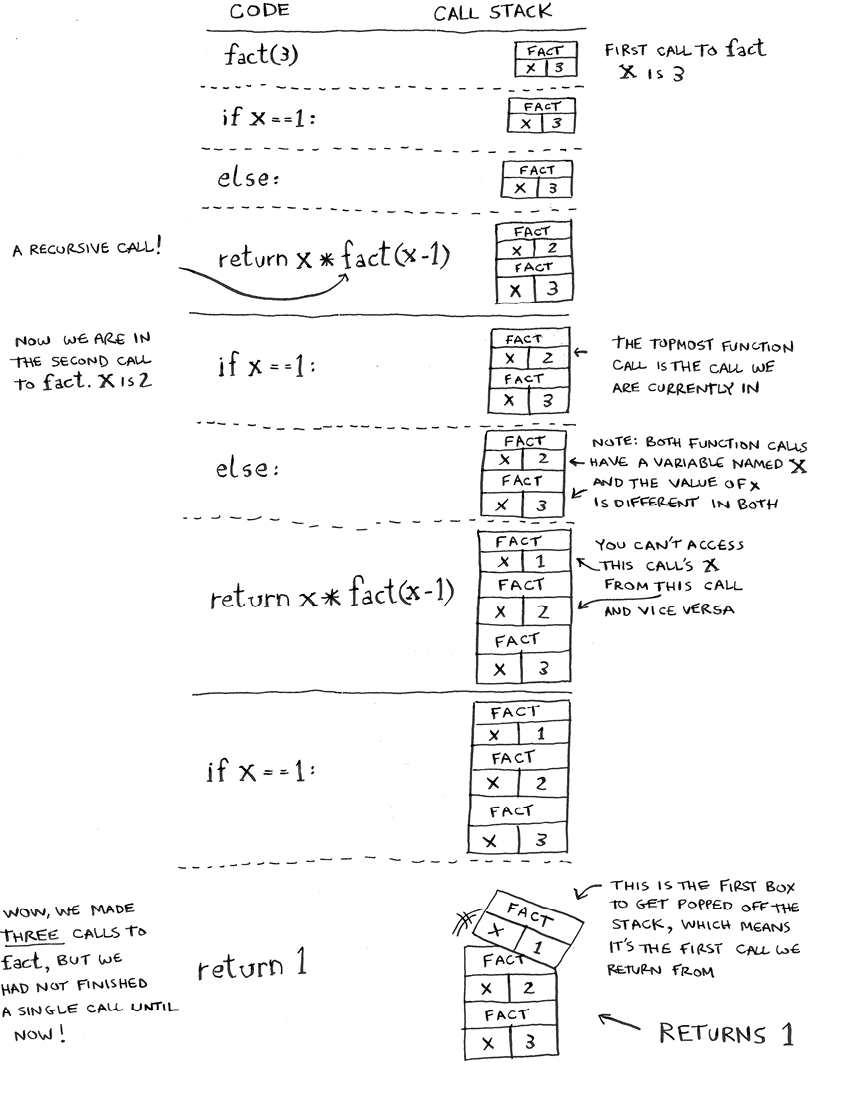 CODE
CALL STACK
fact(3)
FACT
X 3
FIRST CALL TO fact
X IS 3
if x==1:
FACT
X 3
else:
FACT
X 3
A RECURSIVE CALL!
return x * fact(x-1)
FACT
X 2
FACT
X 3
NOW WE ARE IN
THE SECOND CALL
TO fact. X IS 2
if x==1:
FACT
X 2
FACT
X 3
THE TOPMOST FUNCTION
CALL IS THE CALL WE
ARE CURRENTLY IN
else:
FACT
X 2
FACT
X 3
NOTE: BOTH FUNCTION CALLS
HAVE A VARIABLE NAMED X
AND THE VALUE OF X
IS DIFFERENT IN BOTH
return x * fact(x-1)
FACT
X 1
FACT
X 2
FACT
X 3
YOU CAN'T ACCESS
THIS CALL'S X
FROM THIS CALL
AND VICE VERSA
if x==1:
FACT
X 1
FACT
X 2
FACT
X 3
WOW, WE MADE
THREE CALLS TO
fact, BUT WE
HAD NOT FINISHED
A SINGLE CALL UNTIL
NOW!
return 1
FACT
X 1
FACT
X 2
FACT
X 3
THIS IS THE FIRST BOX
TO GET POPPED OFF THE
STACK, WHICH MEANS
IT'S THE FIRST CALL WE
RETURN FROM
RETURNS 1